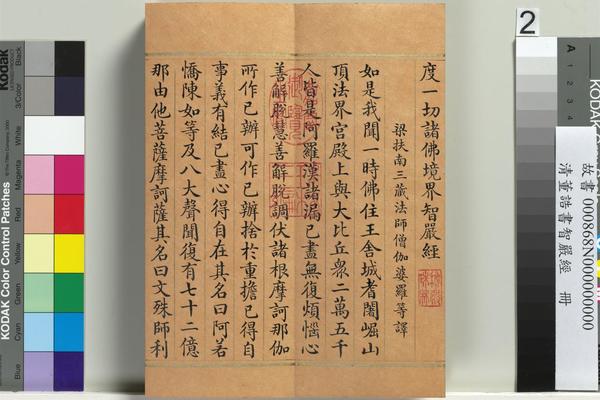 度一切諸佛境界智嚴經
梁扶南三藏法師僧伽婆羅等譯
如是我聞一時佛住王舍城耆闍崛山
頂法界宮殿上與大比丘眾二萬五千
人皆是阿羅漢諸漏已盡無復煩惱心
善解脫慧善解脫調伏諸根摩訶那伽
所作已辦可作已辦捨於重擔已得自
事義有結已盡心得自在其名曰阿若
憍陳如等及八大聲聞復有七十二億
那由他菩薩摩訶薩其名曰文殊師利
故書 000868N000000000
清董誥書智嚴經 冊
2
A
1
2
3
4
Kodak
KODAK Color Control Patches
Blue
Cyan
Green
Yellow
Red
Magenta
White
3/Color
Black